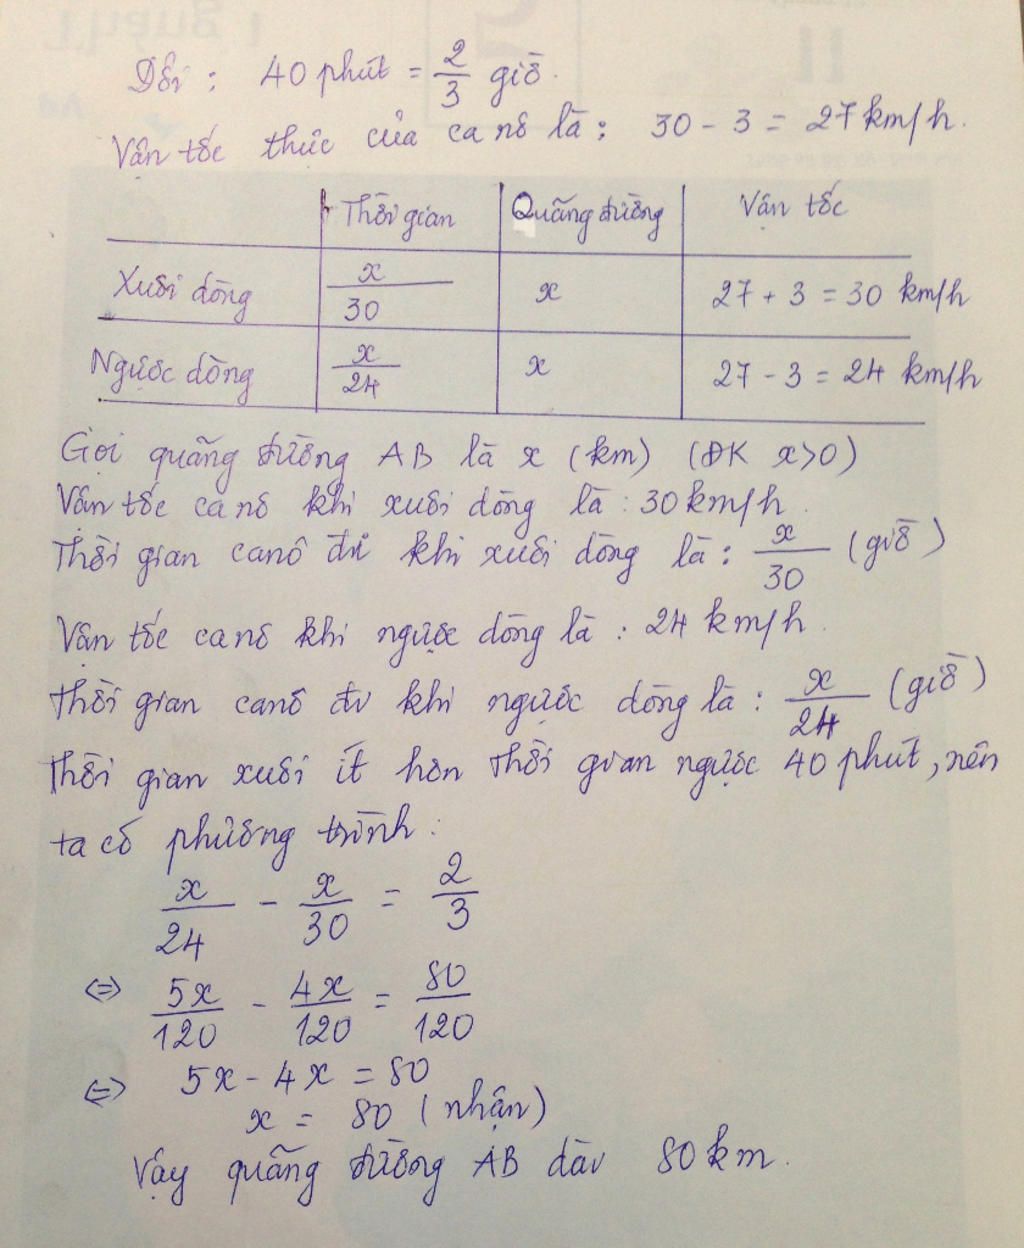 Đổi : 40 phút = 2/3 giờ.
Vận tốc thực của ca nô là : 30 - 3 = 27 km/h.
Thời gian | Quãng đường | Vận tốc
Xuôi dòng | x/30 | x | 27 + 3 = 30 km/h
Ngược dòng | x/24 | x | 27 - 3 = 24 km/h
Gọi quãng đường AB là x (km) (ĐK x>0)
Vận tốc ca nô khi xuôi dòng là : 30 km/h.
Thời gian canô đi khi xuôi dòng là : x/30 (giờ)
Vận tốc ca nô khi ngược dòng là : 24 km/h.
Thời gian canô đi khi ngược dòng là : x/24 (giờ)
Thời gian xuôi ít hơn thời gian ngược 40 phút, nên
ta có phương trình :
x/24 - x/30 = 2/3
⇔ 5x/120 - 4x/120 = 80/120
⇔ 5x - 4x = 80
x = 80 (nhận)
Vậy quãng đường AB dài 80 km.